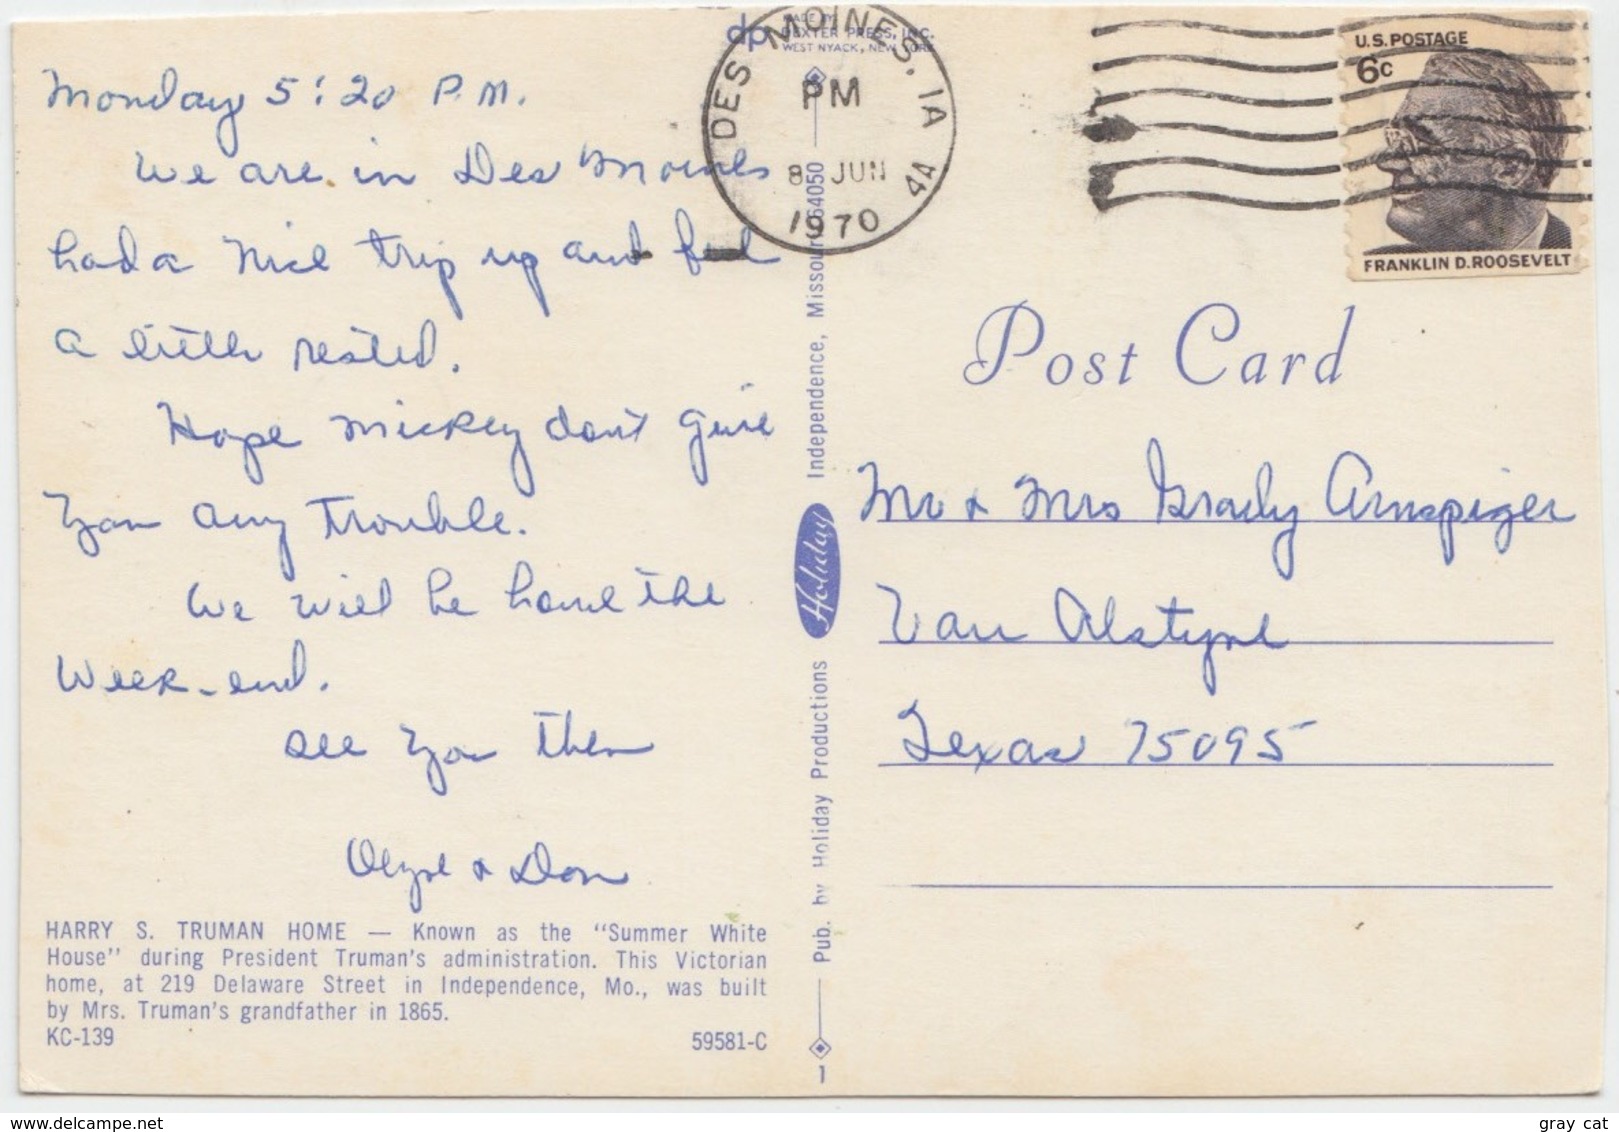 Monday 5:20 P.M.
We are in Des Moines
had a nice trip up and feel
a little rested.
Hope Mickey don't give
You any trouble.
We will be home the
Week-end.
See you then
& Don
HARRY S. TRUMAN HOME — Known as the "Summer White
House" during President Truman's administration. This Victorian
home, at 219 Delaware Street in Independence, Mo., was built
by Mrs. Truman's grandfather in 1865.
KC-139 59581-C
dp MADE BY
DEXTER PRESS, INC.
WEST NYACK, NEW YORK
Pub. by Holiday Productions Holiday Independence, Missouri 64050
1
DES MOINES, IA
PM
8 JUN
1970
4A
U.S. POSTAGE
6c
FRANKLIN D. ROOSEVELT
Post Card
Mr & Mrs Grady Armspiger
Van Alstyne
Texas 75095
gray cat